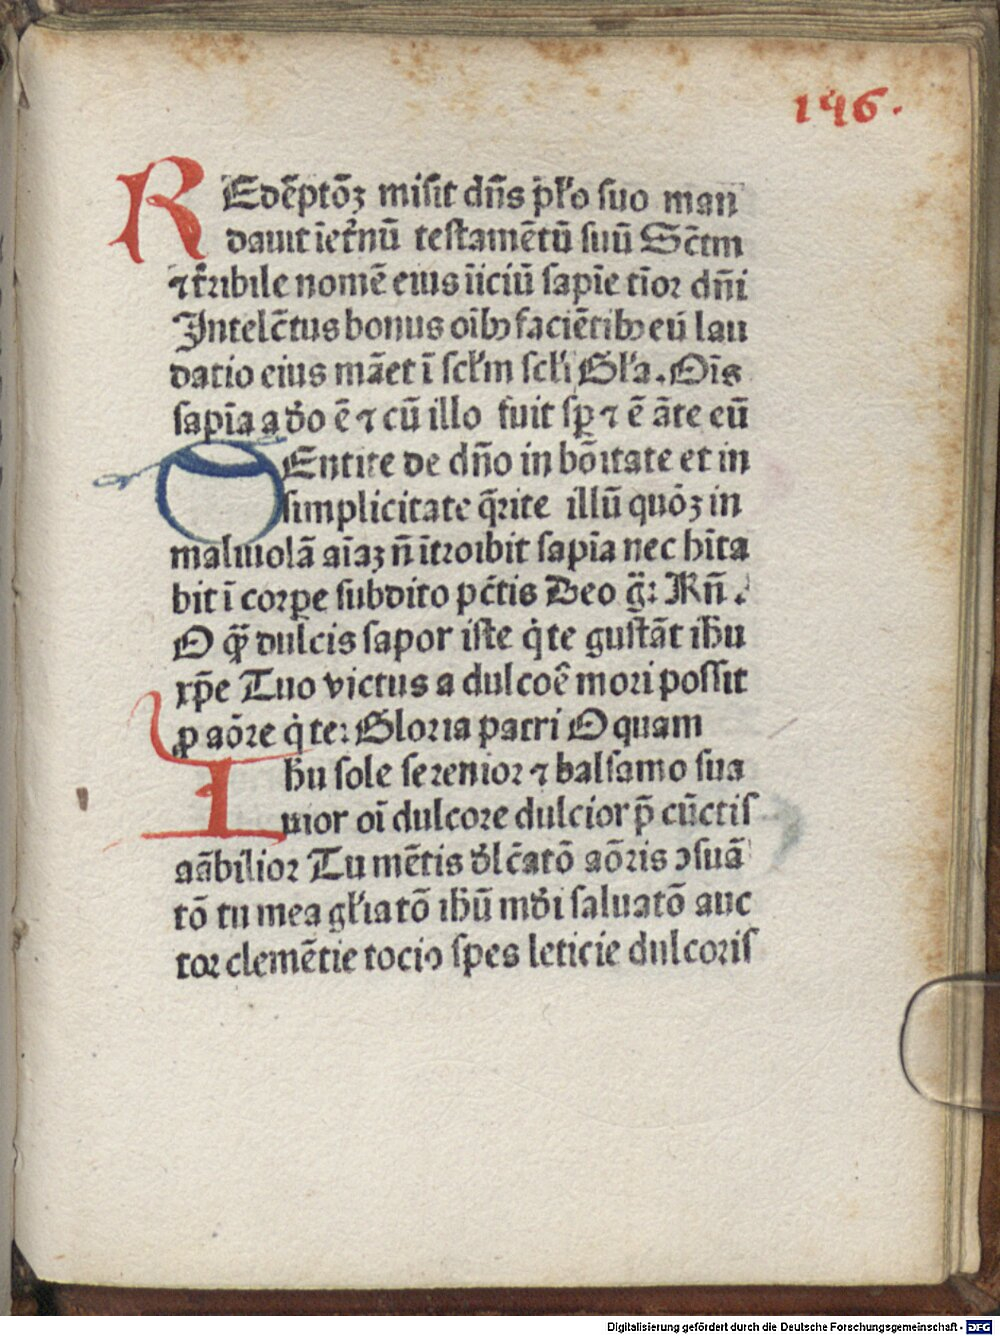 196.
REdēptōꝫ misit dn̄s pꝉo suo man
dauit īet̄nū testamētū suū Sc̄tm
⁊t̄ribile nomē eius īiciū sapīe tīor dn̄i
Intelc̄tus bonus oībꝫ faciētibꝫ eū lau
datio eius māet ī scꝉm scꝉi Gꝉa. Oīs
sapīa a dō ē ⁊ cū illo fuit sꝑ ⁊ ē āte eū
SEntite de dn̄o in bōitate et in
simplicitate q̄rite illū quōꝫ in
maliuolā aīaꝫ n̄ ītroibit sapīa nec hīta
bit ī corꝑe subdito pc̄tis Deo gͣ: Rn̄.
O qͣꝫ dulcis sapor iste q̇ te gustāt ihū
xp̄e Tuo victus a dulcoē mori possit
ꝑ aōre q̇ te: Gloria patri O quam
Ihū sole serenior ⁊ balsamo sua
uior oī dulcore dulcior p̄ cūctis
aābilior Tu mētis dl̄c̄atō aōris ↄsuā
tō tu mea gꝉiatō ihū mdī saluatō auc
tor clemētie tociꝰ spes leticie dulcoris
Digitalisierung gefördert durch die Deutsche Forschungsgemeinschaft - DFG